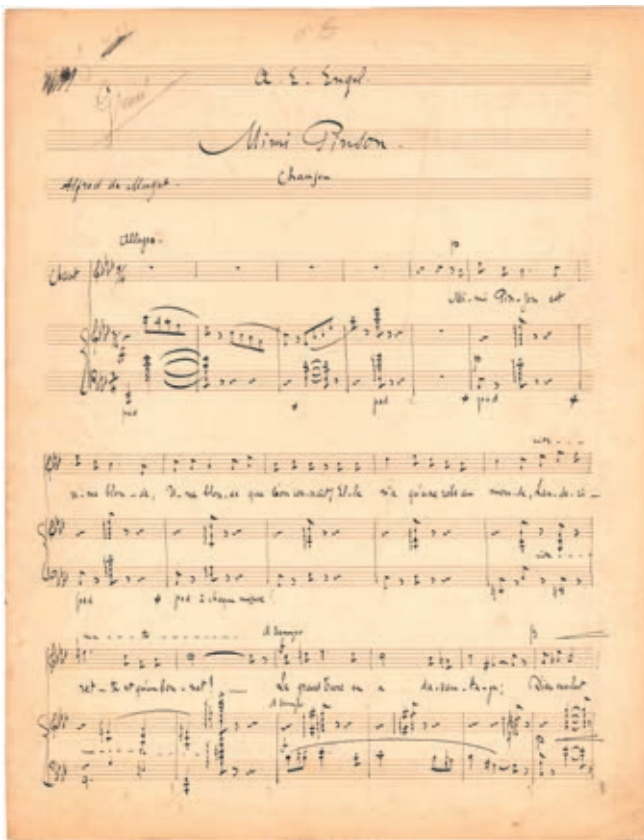 Gravé
A. E. Engel.
Mimi Pinson.
Chanson
Alfred de Musset.
Allegro.
Chant
p
Mi-mi Pin-son est
ped ped ped
u-ne blon-de, U-ne blon-de que l'on con-naît; El-le n'a qu'une robe au mon-de, Lan-de-ri-
ped ped à chaque mesure
ret-te et qu'un bon-net! Le grand Turc en a da-van-ta-ge; Dieu voulut
p